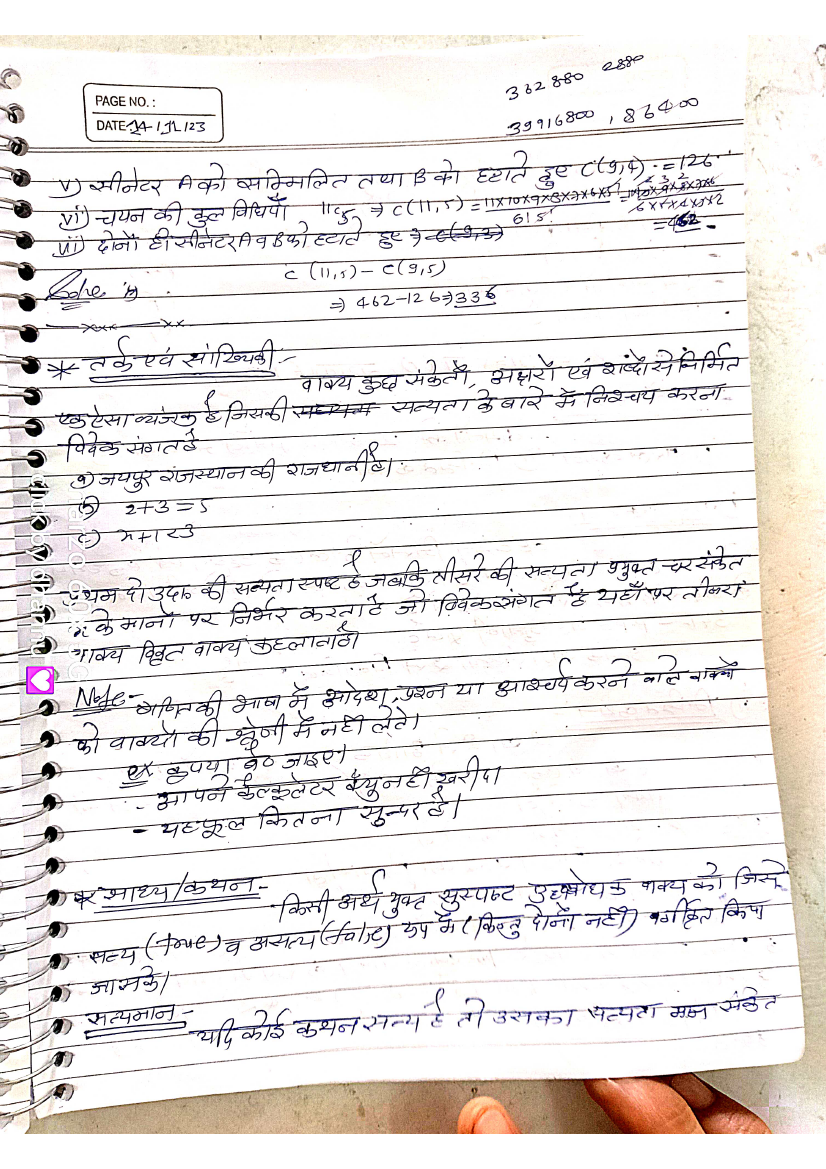 362880 2880
39916800, 86400
PAGE NO.:
DATE 14/11/23
v) सीनेटर A को सम्मिलित तथा B को हटाते हुए C(9,4) = 126
vi) चयन की कुल विधियाँ 11C5 ⇒ C(11,5) = 11×10×9×8×7×6×5! / 6!5! = 11×10×9×8×7×6 / 6×5×4×3×2
= 462
vii) दोनों ही सीनेटर A व B को हटाते हुए ⇒
C(11,5) – C(9,5)
⇒ 462-126 ⇒ 336
* तर्क एवं सांख्यिकी:-
वाक्य कुछ संकेतों, अक्षरों एवं शब्दों से निर्मित
एक ऐसा व्यंजक है जिसकी सत्यता के बारे में निश्चय करना
विवेक संगत है
a) जयपुर राजस्थान की राजधानी है।
b) 2+3=5
c) x+1<3
प्रथम दो उदा० की सत्यता स्पष्ट है जबकि तीसरे की सत्यता प्रयुक्त चर संकेत
x के मानों पर निर्भर करता है जो विवेकसंगत है यहाँ पर तीसरा
वाक्य विवृत वाक्य कहलाता है।
Note- गणित की भाषा में आदेश, प्रश्न या आश्चर्य करने वाले वाक्यों
को वाक्यों की श्रेणी में नहीं लेते।
ex कृपया बैठ जाइए।
- आपने कैल्कूलेटर क्यु नहीं खरीदा
- यह फूल कितना सुन्दर है।
* साध्य/कथन-
किसी अर्थ युक्त सुस्पष्ट वाक्य को जिसे
सत्य (true) व असत्य (false) रूप में (किन्तु दोनों नहीं) वर्गीकृत किया
जा सके।
सत्यमान-
यदि कोई कथन सत्य है तो उसका सत्यता मान संकेत